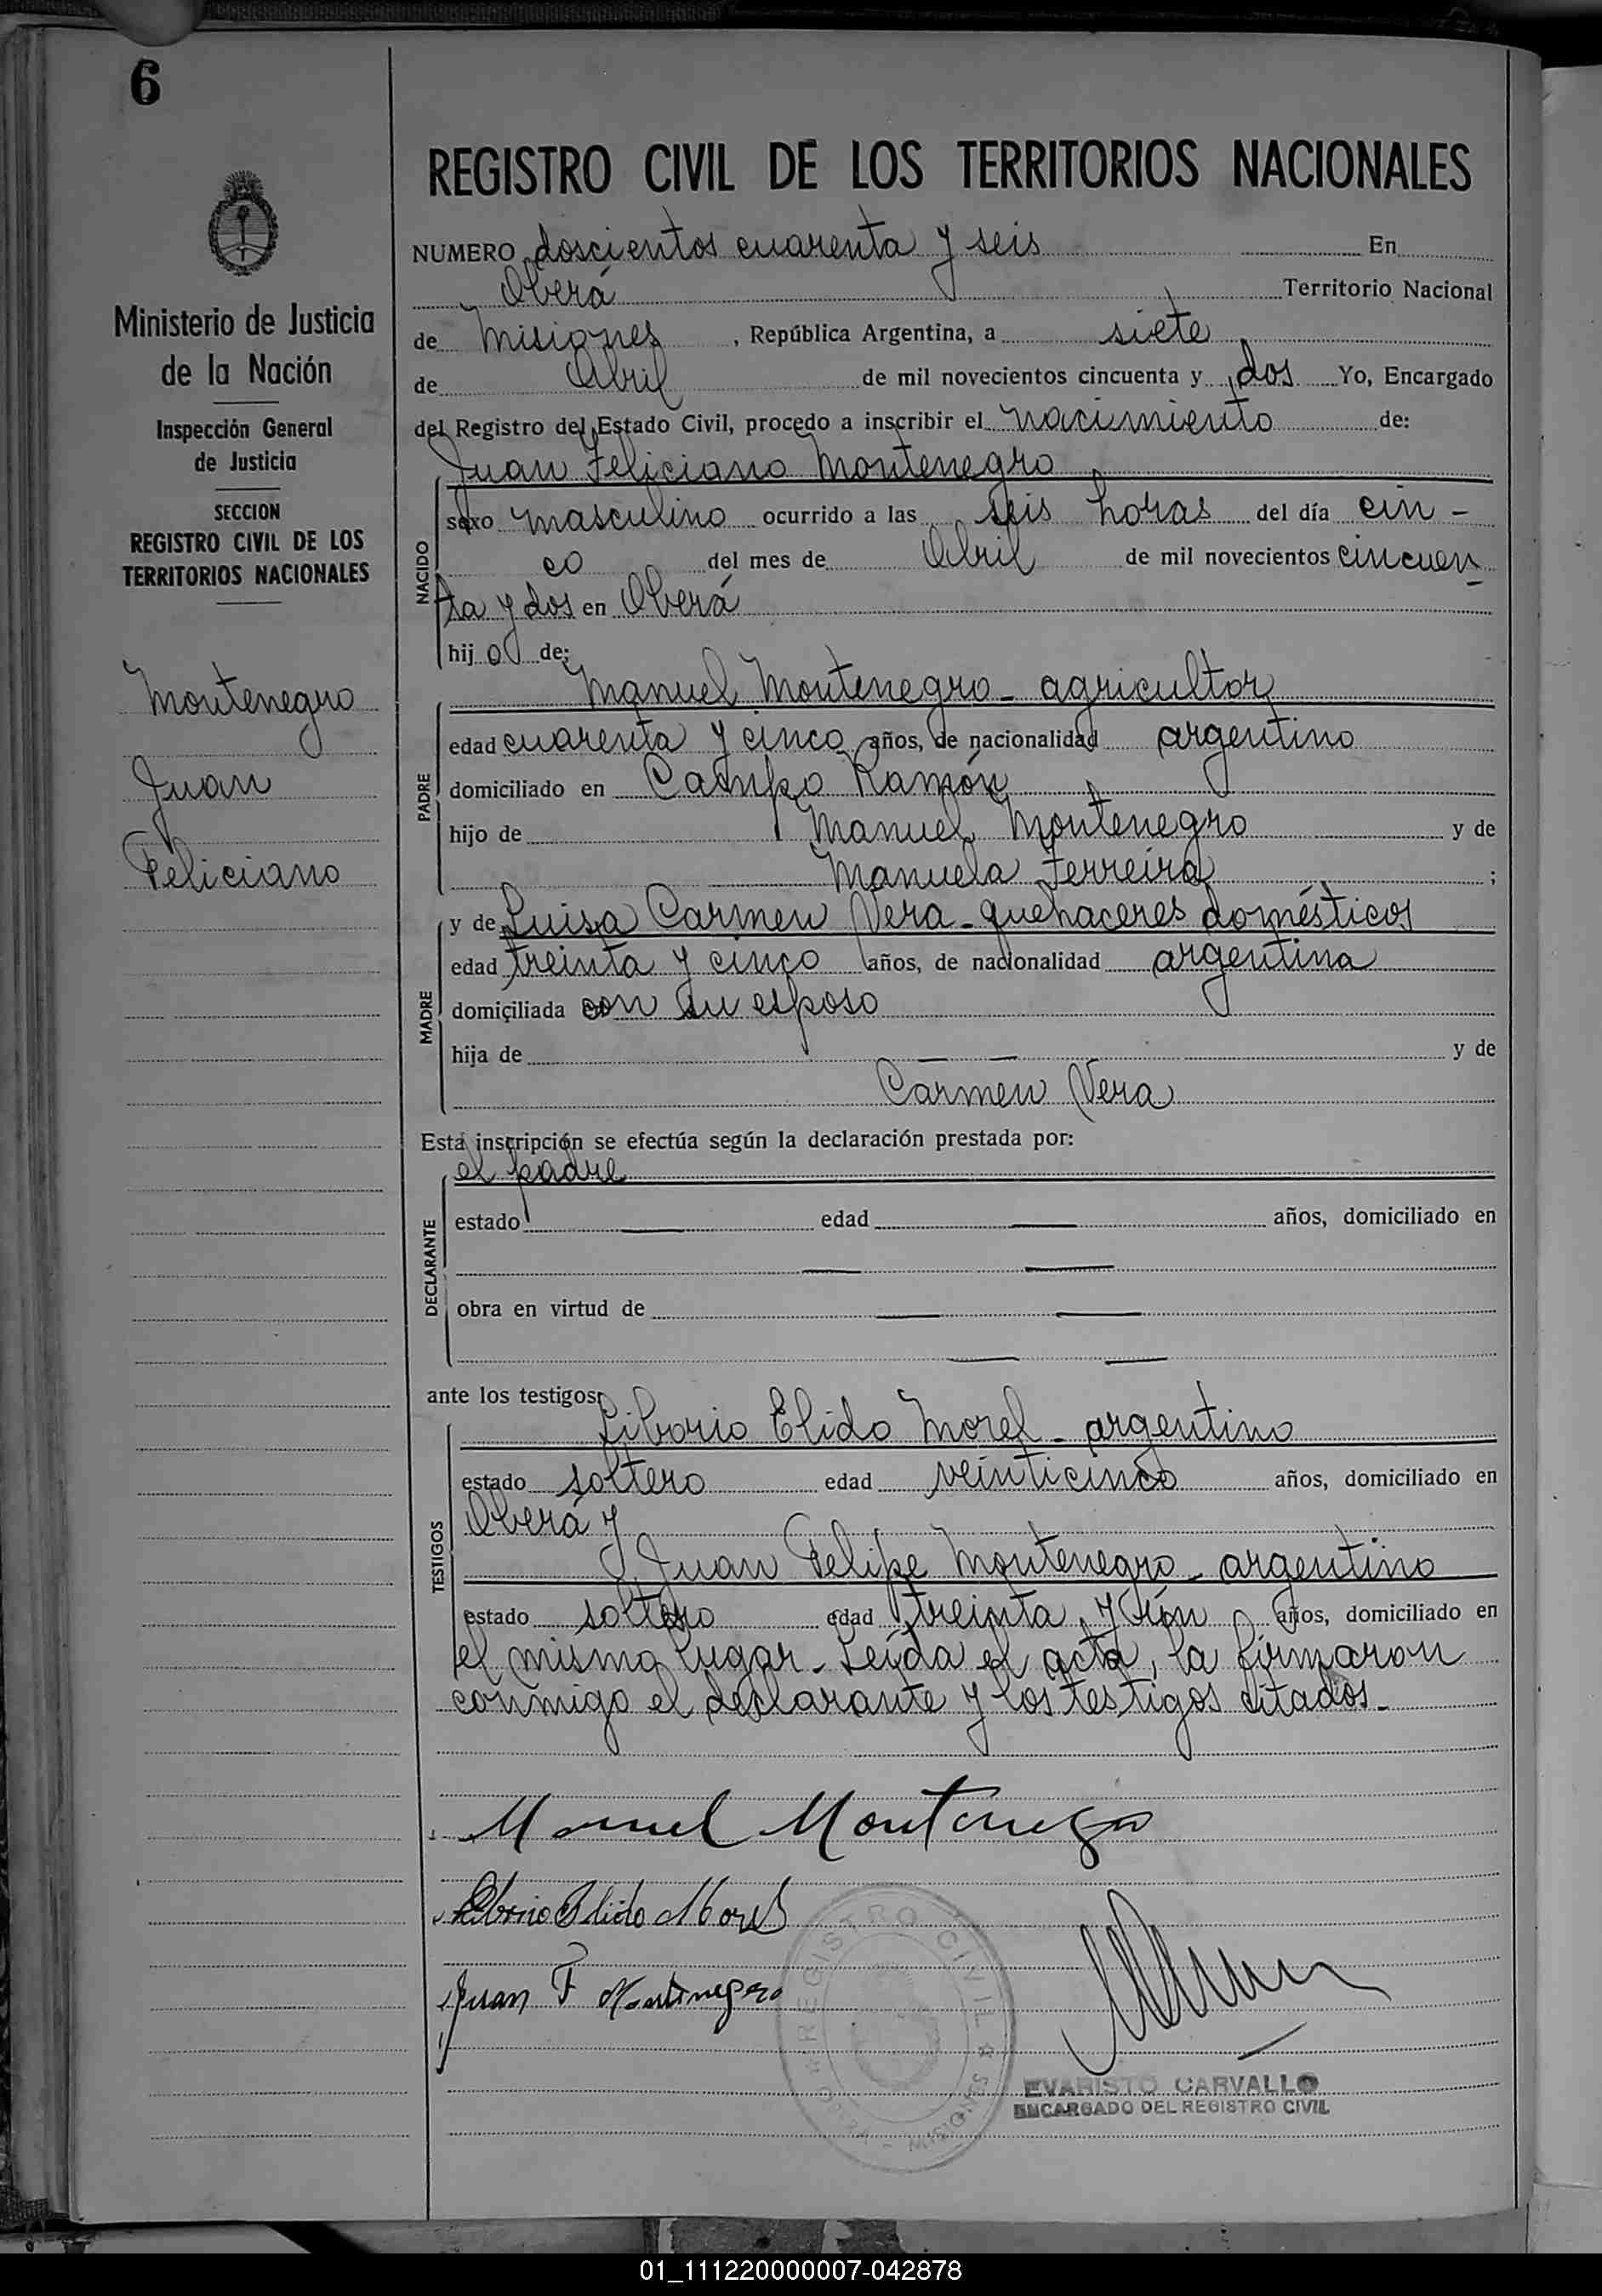 6
REGISTRO CIVIL DE LOS TERRITORIOS NACIONALES
NUMERO doscientos cuarenta y seis En
Oberá Territorio Nacional
de Misiones, República Argentina, a siete
de Abril de mil novecientos cincuenta y dos Yo, Encargado
del Registro del Estado Civil, procedo a inscribir el nacimiento de:
Juan Feliciano Montenegro
NACIDO
sexo masculino ocurrido a las seis horas del día cin-
co del mes de Abril de mil novecientos cincuen-
ta y dos en Oberá
hijo de:
Manuel Montenegro - agricultor
PADRE
edad cuarenta y cinco años, de nacionalidad argentino
domiciliado en Campo Ramón
hijo de Manuel Montenegro y de
Manuela Ferreira;
MADRE
y de Luisa Carmen Vera - quehaceres domésticos
edad treinta y cinco años, de nacionalidad argentina
domiciliada con su esposo
hija de — — y de
Carmen Vera
Esta inscripción se efectúa según la declaración prestada por:
el padre
DECLARANTE
estado — edad — años, domiciliado en
— —
obra en virtud de — —
— —
ante los testigos:
Liborio Elido Morel - argentino
TESTIGOS
estado soltero edad veinticinco años, domiciliado en
Oberá y
Juan Felipe Montenegro - argentino
estado soltero edad treinta y ún años, domiciliado en
el mismo lugar - Leída el acta, la firmaron
conmigo el declarante y los testigos citados -
Manuel Montenegro
Liborio Elido Morel
Juan F Montenegro
REGISTRO CIVIL
OBERA - MISIONES
EVARISTO CARVALLO
ENCARGADO DEL REGISTRO CIVIL
Ministerio de Justicia
de la Nación
Inspección General
de Justicia
SECCION
REGISTRO CIVIL DE LOS
TERRITORIOS NACIONALES
Montenegro
Juan
Feliciano
01_111220000007-042878